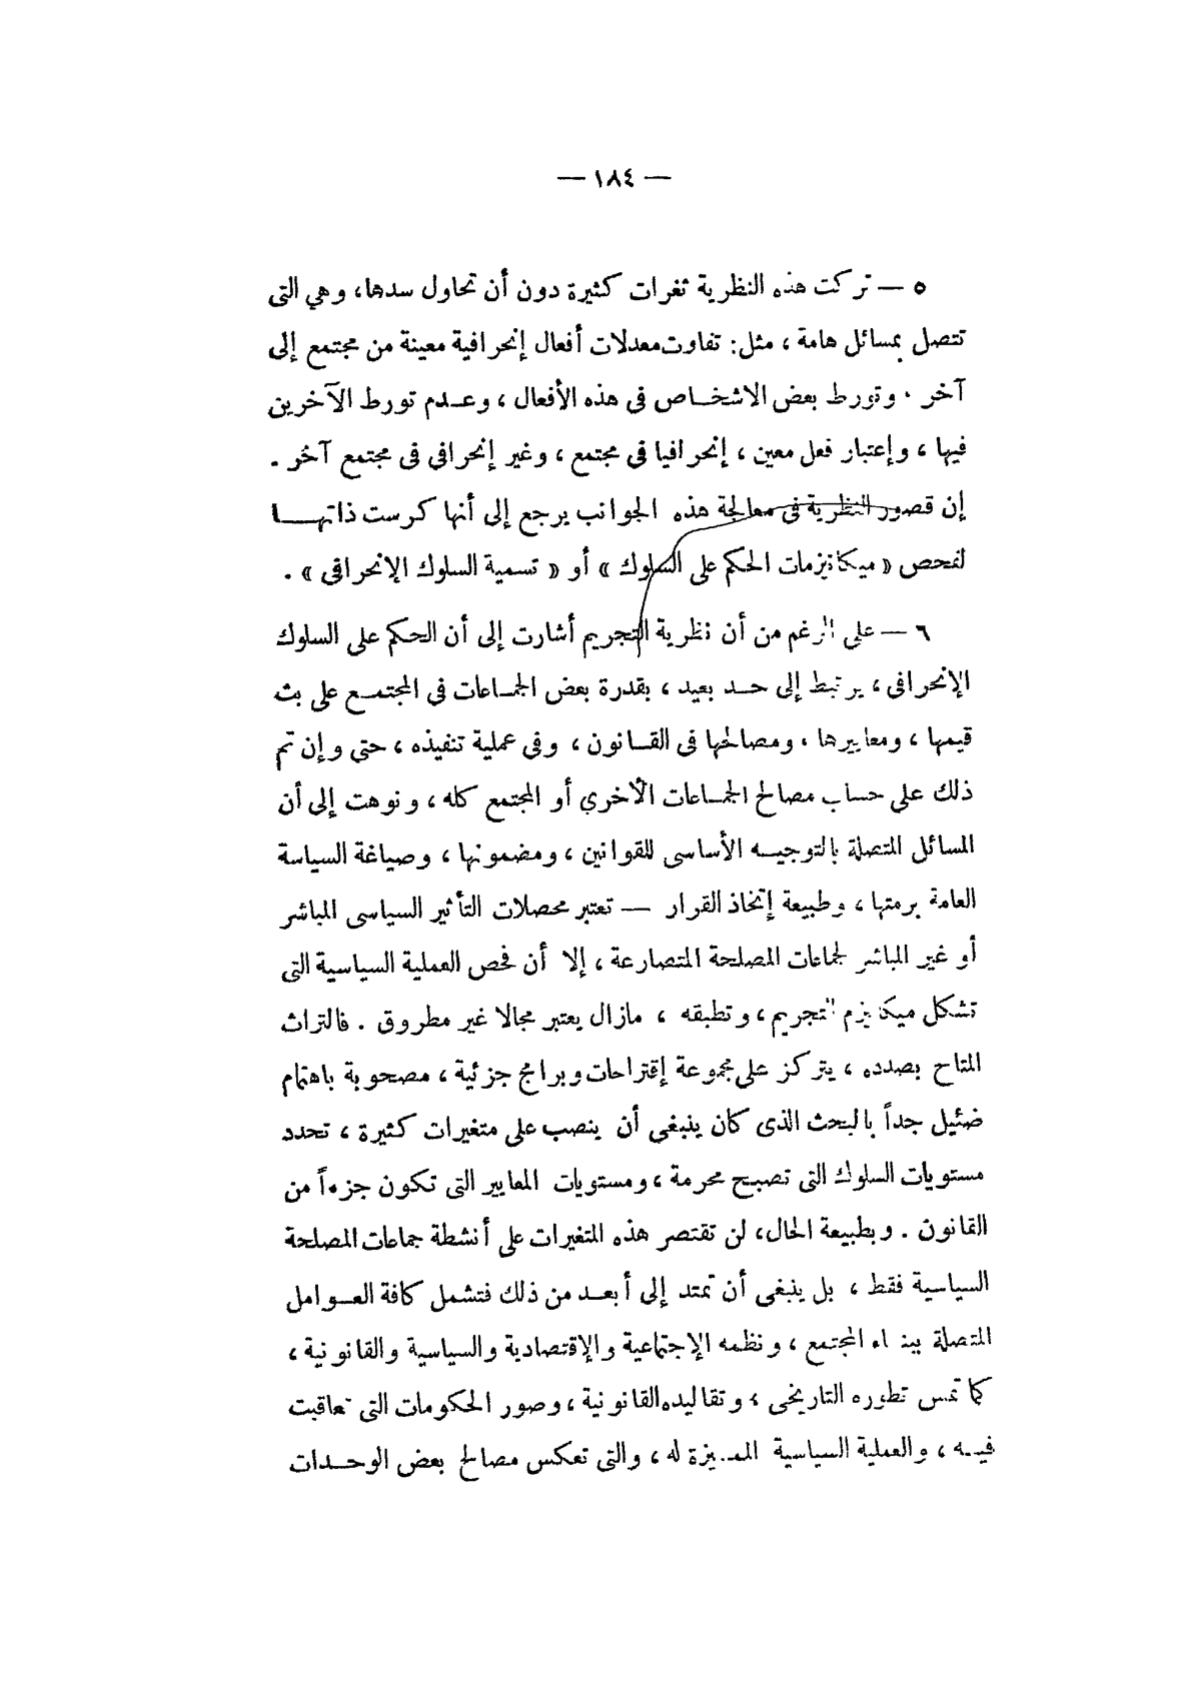 — ١٨٤ —
٥ — تركت هذه النظرية ثغرات كثيرة دون أن تحاول سدها، وهي التى
تتصل بمسائل هامة ، مثل: تفاوت معدلات أفعال إنحرافية معينة من مجتمع إلى
آخر . وتورط بعض الاشخاص فى هذه الأفعال ، وعدم تورط الآخرين
فيها ، وإعتبار فعل معين ، إنحرافيا فى مجتمع ، وغير إنحرافى فى مجتمع آخر .
إن قصور النظرية فى معالجة هذه الجوانب يرجع إلى أنها كرست ذاتها
لفحص « ميكانيزمات الحكم على السلوك » أو « تسمية السلوك الإنحرافى » .
٦ — على الرغم من أن نظرية التجريم أشارت إلى أن الحكم على السلوك
الإنحرافى ، يرتبط إلى حد بعيد ، بقدرة بعض الجماعات فى المجتمع على بث
قيمها ، ومعاييرها ، ومصالحها فى القانون ، وفى عملية تنفيذه ، حتى وإن تم
ذلك على حساب مصالح الجماعات الأخري أو المجتمع كله ، ونوهت إلى أن
المسائل المتصلة بالتوجيه الأساسى للقوانين ، ومضمونها ، وصياغة السياسة
العامة برمتها ، وطبيعة إتخاذ القرار — تعتبر محصلات التأثير السياسى المباشر
أو غير المباشر لجماعات المصلحة المتصارعة ، إلا أن فحص العملية السياسية التى
تشكل ميكانيزم التجريم ، وتطبقه ، مازال يعتبر مجالا غير مطروق . فالتراث
المتاح بصدده ، يتركز على مجموعة إقتراحات وبرامج جزئية ، مصحوبة باهتمام
ضئيل جداً بالبحث الذى كان ينبغى أن ينصب على متغيرات كثيرة ، تحدد
مستويات السلوك التى تصبح محرمة ، ومستويات المعايير التى تكون جزءاً من
القانون . وبطبيعة الحال، لن تقتصر هذه المتغيرات على أنشطة جماعات المصلحة
السياسية فقط ، بل ينبغى أن تمتد إلى أبعد من ذلك فتشمل كافة العوامل
المتصلة ببناء المجتمع ، ونظمه الإجتماعية والإقتصادية والسياسية والقانونية ،
كما تمس تطوره التاريخى ، وتقاليده القانونية ، وصور الحكومات التى تعاقبت
فيه ، والعملية السياسية المميزة له ، والتى تعكس مصالح بعض الوحدات